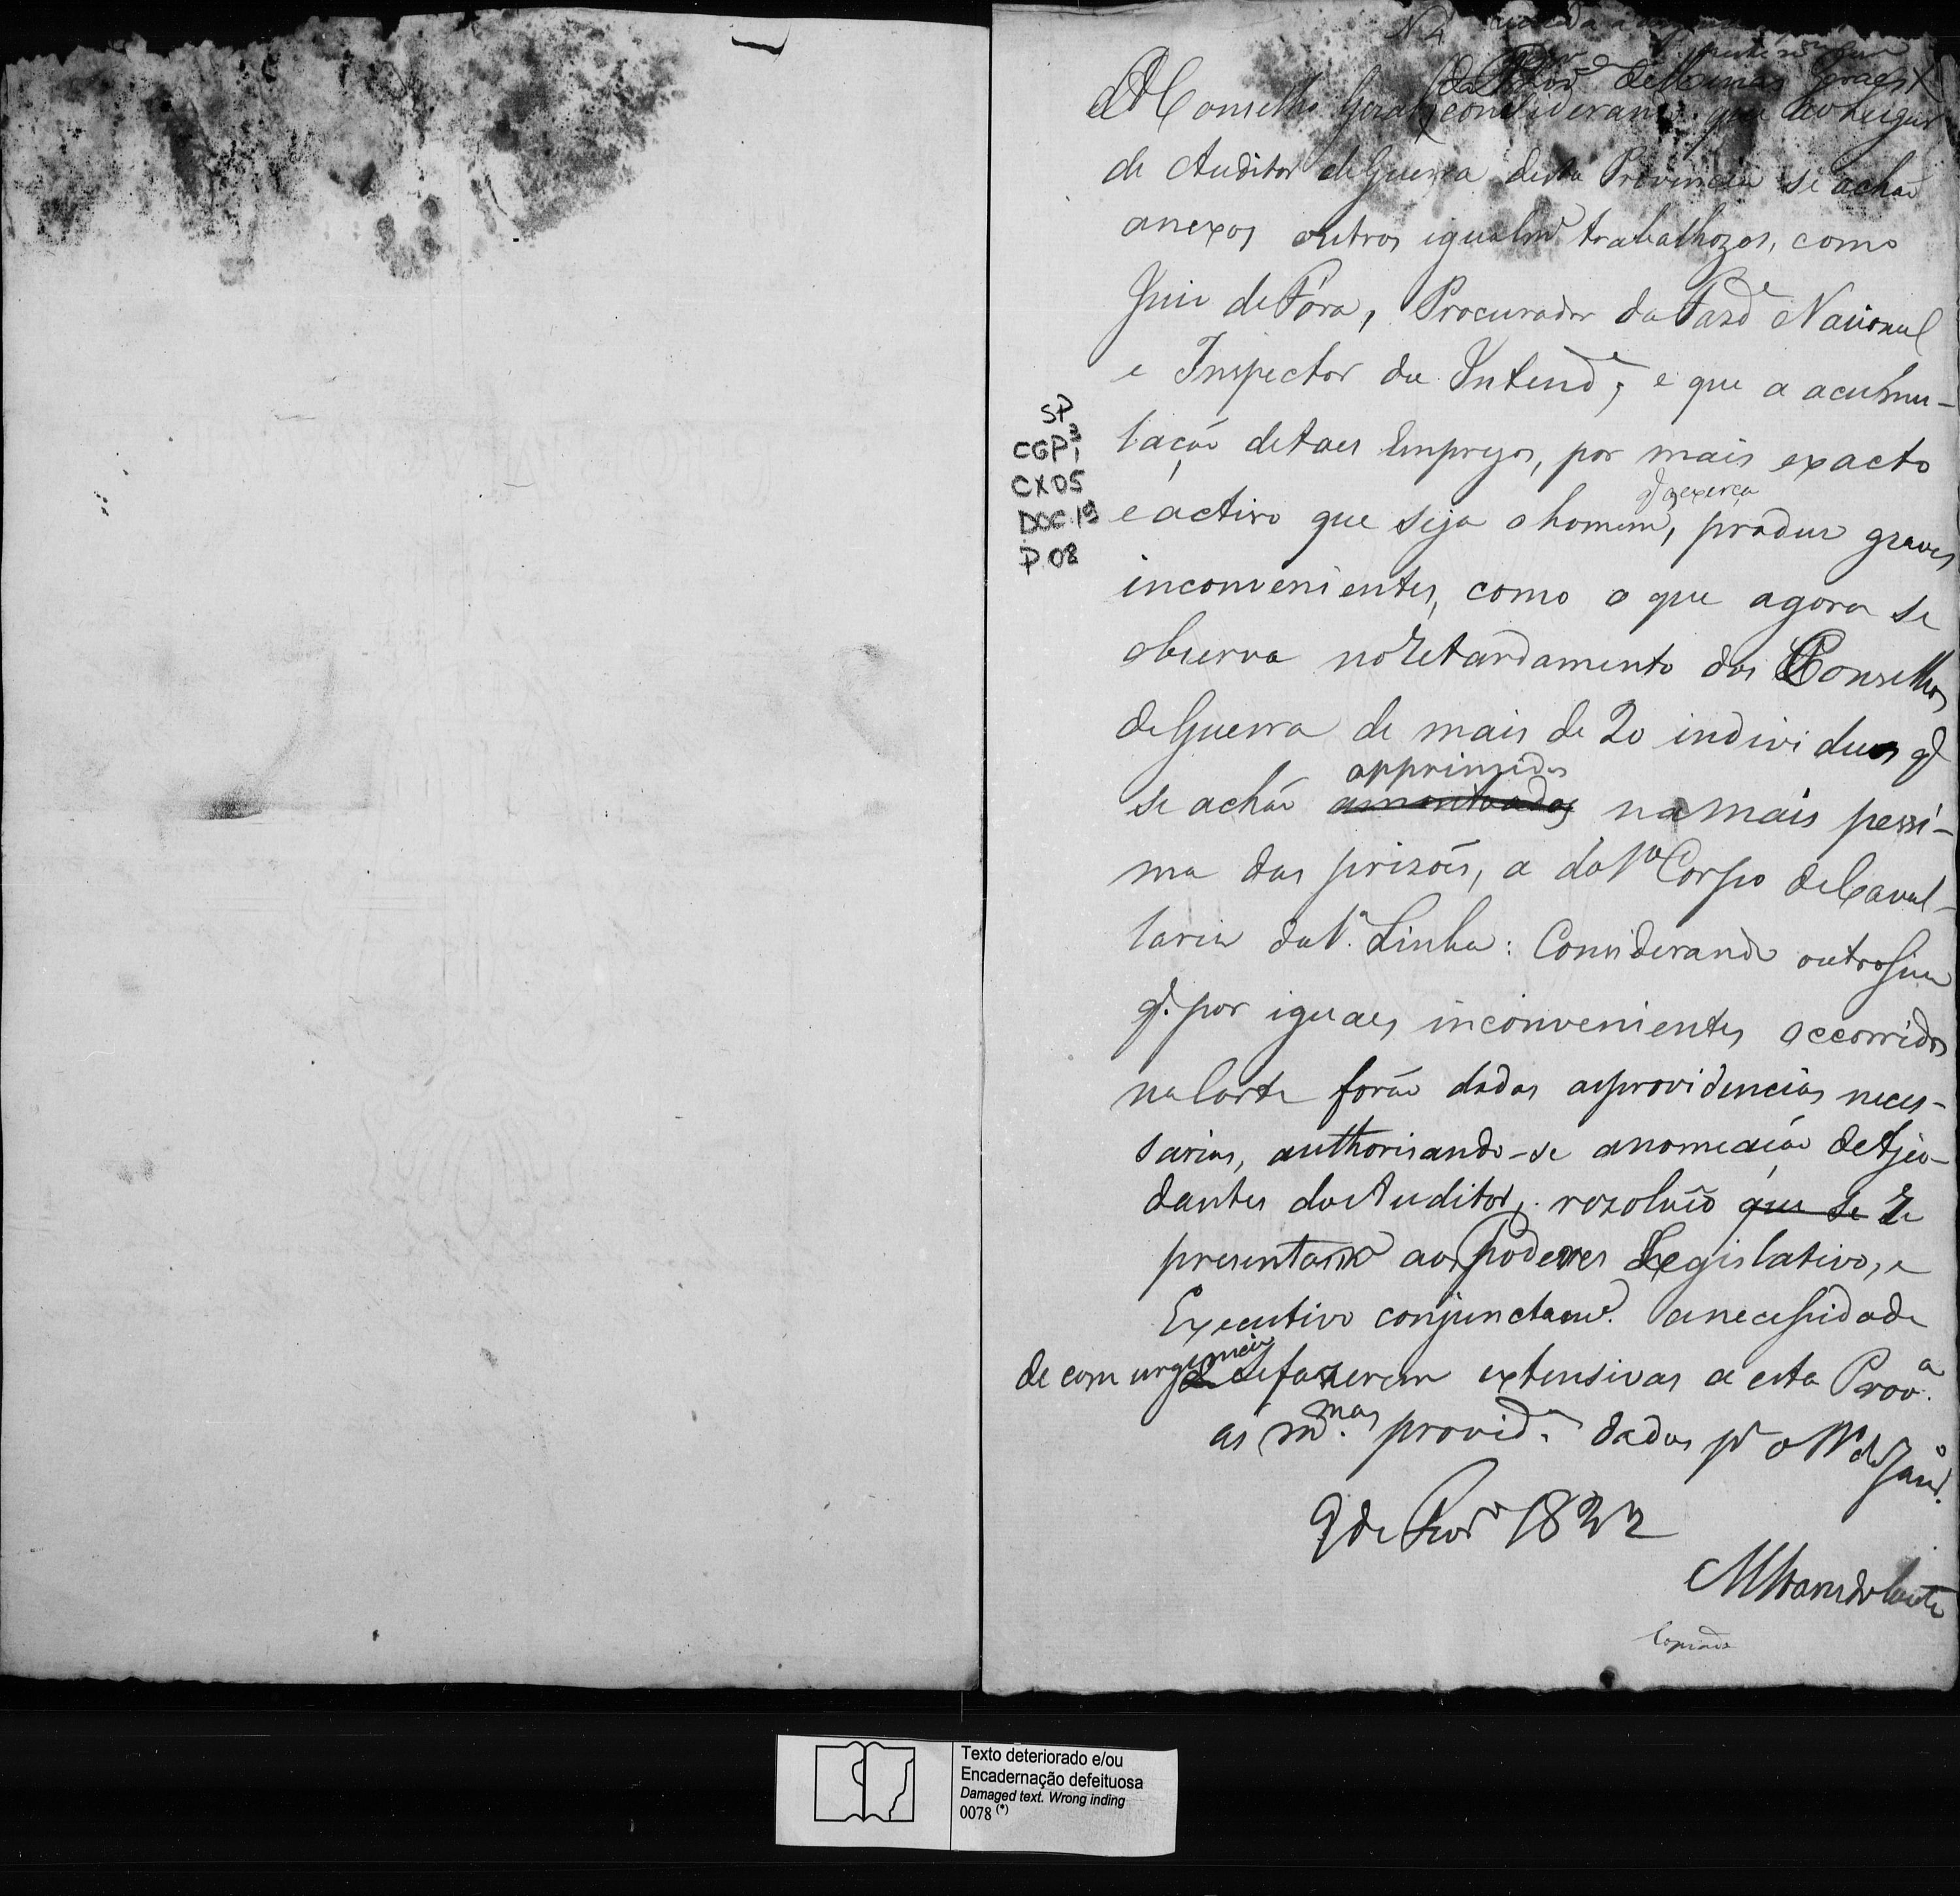 N 4
da Prov.ª de Minas Geraes
O Conselho Geral considerando que ao Lugar
de Auditor de Guerra desta Provincia se achão
anexos outros igualm.e trabalhozos, como
Juiz de Fóra, Procurador da Fazd.ª Nacional
e Inspector da Intend.ª, e que a acumu-
lação de taes Empregos, por mais exacto
q̃ os exerça
e activo que seja o homem, produz graves
inconvenientes, como o que agora se
observa no retardamento dos Conselhos
de Guerra de mais de 20 individuos q̃
opprimidos
se achão amontoados na mais pessi-
ma das prizões, a do 1º Corpo de Caval-
laria da 1.ª Linha: Considerando outrosim
q̃. por iguaes inconvenientes occorridos
na Corte forão dadas as providencias neces-
sarias, authorisando-se a nomeação de Aju-
dantes do Auditor, rezolveo que se re
presentasse aos poderes Legislativo, e
Executivo conjunctam.e a necessidade
de com urgencia se fazerem extensivas a esta Prov.ª
as m.mas provid.as dadas p.ª o R.º de Janr.º
9 de Fevr.º 1832
Copiado
SP
CGP¹3
CX05
DOC.19
P.08
Texto deteriorado e/ou
Encadernação defeituosa
Damaged text. Wrong inding
0078 (*)